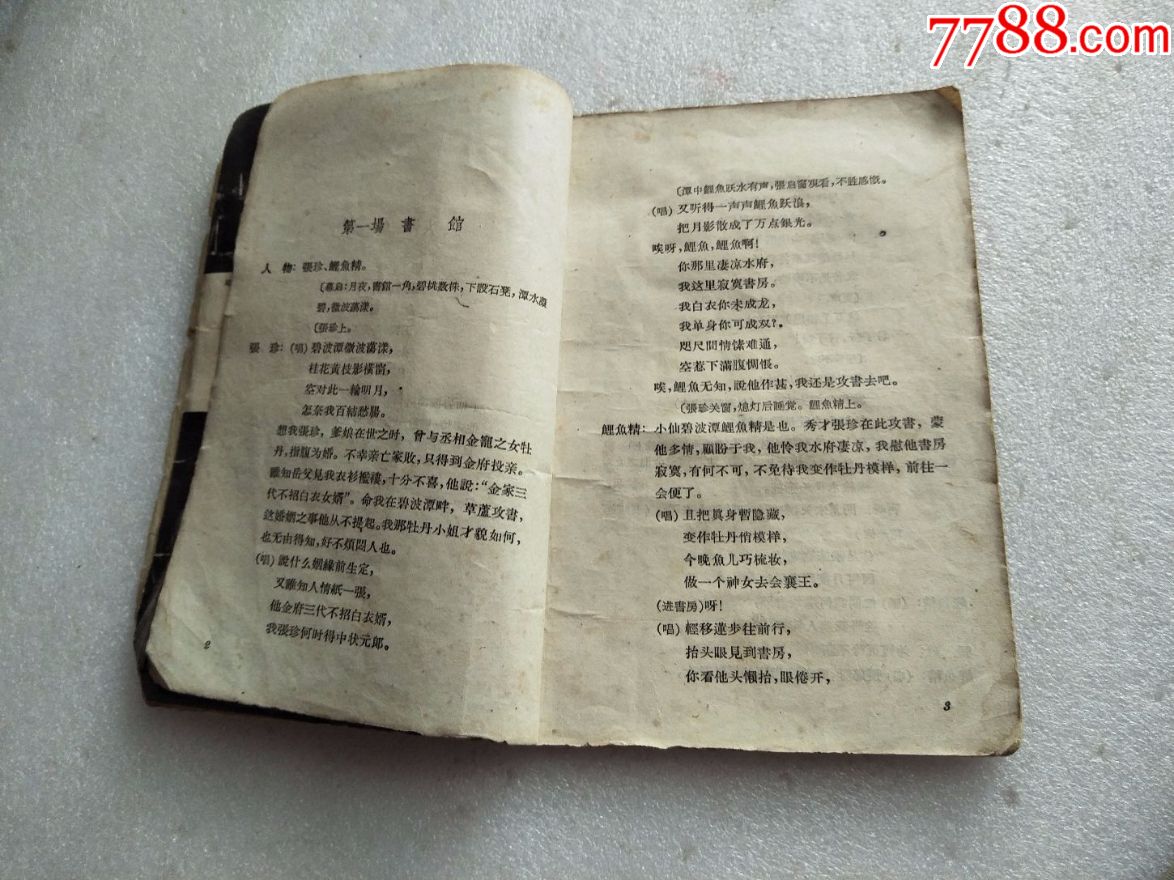 7788.com
第一場 書 館
人 物：張珍、鯉魚精。
〔幕启：月夜，書館一角，碧桃数株，下設石凳，潭水澄
碧，微波蕩漾。
〔張珍上。
張 珍：（唱）碧波潭微波蕩漾，
桂花黄枝影横窗，
空对此一輪明月，
怎奈我百結愁腸。
想我張珍，爹娘在世之时，曾与丞相金寵之女牡
丹，指腹为婚。不幸亲亡家敗，只得到金府投亲。
誰知岳父見我衣衫襤褸，十分不喜，他説：“金家三
代不招白衣女婿”。命我在碧波潭畔，草蘆攻書，
这婚姻之事他从不提起。我那牡丹小姐才貌如何，
也无由得知，好不煩悶人也。
（唱）説什么姻緣前生定，
又誰知人情紙一張，
他金府三代不招白衣婿，
我張珍何时得中状元郎。
2
〔潭中鯉魚跃水有声，張启窗观看，不胜感慨。
（唱）又听得一声声鯉魚跃浪，
把月影散成了万点銀光。
唉呀，鯉魚，鯉魚啊！
你那里凄凉水府，
我这里寂寞書房。
我白衣你未成龙，
我单身你可成双？。
咫尺間情愫难通，
空惹下滿腹惆悵。
唉，鯉魚无知，說他作甚，我还是攻書去吧。
〔張珍关窗，熄灯后睡觉。鯉魚精上。
鯉魚精：小仙碧波潭鯉魚精是也。秀才張珍在此攻書，蒙
他多情，顧盼于我，他怜我水府凄凉，我慰他書房
寂寞，有何不可，不免待我变作牡丹模样，前往一
会便了。
（唱）且把眞身暫隐藏，
变作牡丹俏模样，
今晚魚儿巧梳妆，
做一个神女去会襄王。
（进書房）呀！
（唱）輕移蓮步往前行，
抬头眼見到書房，
你看他头懒抬，眼倦开，
3